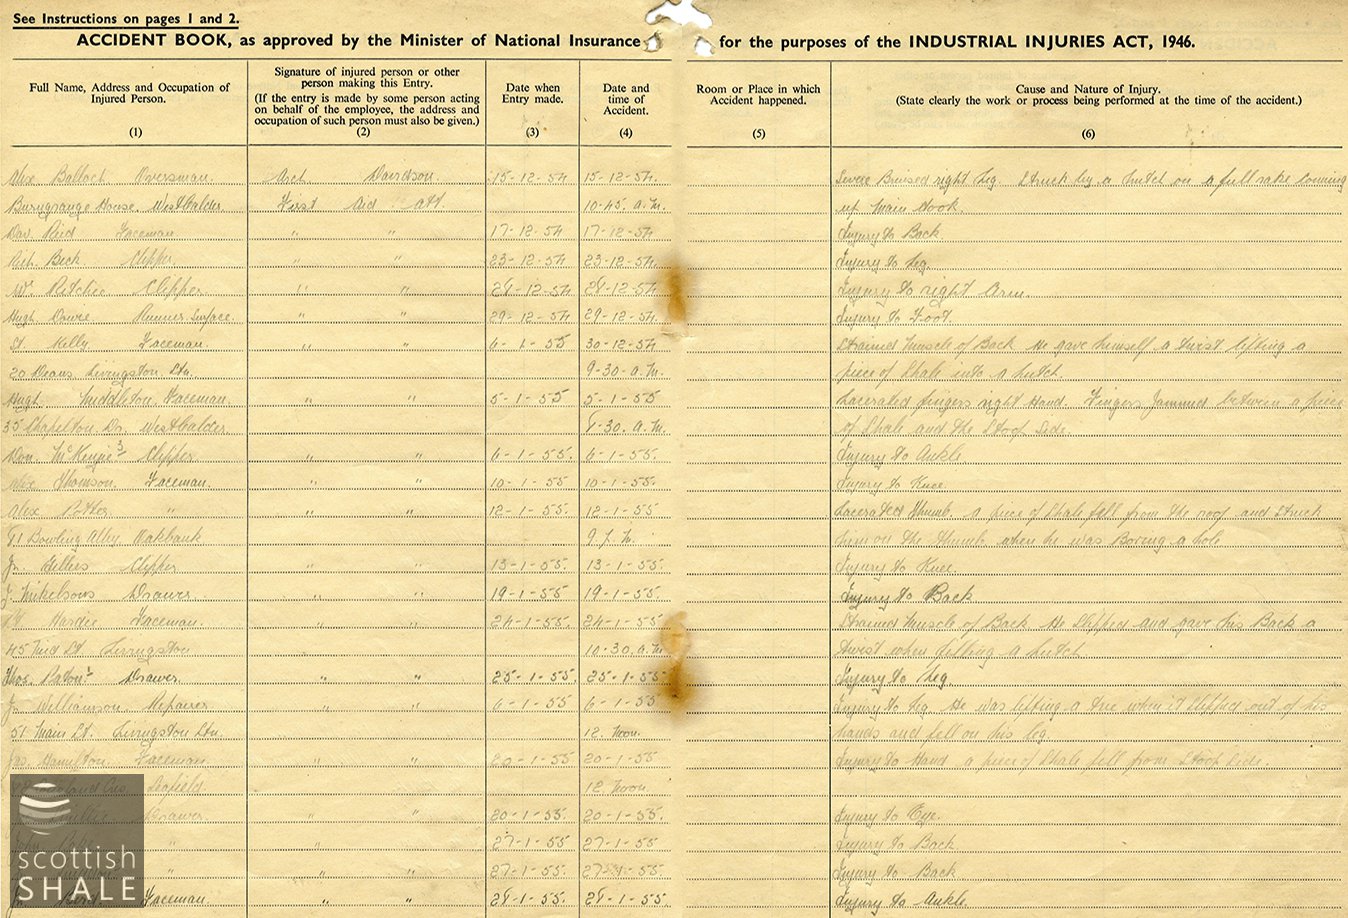 See Instructions on pages 1 and 2.
ACCIDENT BOOK, as approved by the Minister of National Insurance for the purposes of the INDUSTRIAL INJURIES ACT, 1946.
Full Name, Address and Occupation of Injured Person. (1)
Signature of injured person or other person making this Entry. (If the entry is made by some person acting on behalf of the employee, the address and occupation of such person must also be given.) (2)
Date when Entry made. (3)
Date and time of Accident. (4)
Room or Place in which Accident happened. (5)
Cause and Nature of Injury. (State clearly the work or process being performed at the time of the accident.) (6)
Alex Balloch Oversman. Arch. Davidson. 15-12-54 15-12-54. Severe Bruised right leg. Struck by a hutch on a full rake coming
Burngrange House. Westcalder First Aid att. 10-45. a.m. up main dook.
Dav. Reid Faceman " " 17-12-54 17-12-54 Injury to Back.
Rich. Beck Clipper " " 23-12-54 23-12-54. Injury to Leg.
Wm. Ritchie Clipper " " 28-12-54 28-12-54 Injury to right Arm.
Hugh Runner Surface. " " 29-12-54 29-12-54. Injury to Foot.
Kelly Faceman. " " 6-1-55 30-12-54 Strained muscle of Back He gave himself a twist lifting a
20 Deans Livingston Stn. 9-30-a.m. piece of Shale into a hutch.
Hugh Middleton Faceman. " " 5-1-55 5-1-55 Lacerated fingers right Hand. Fingers Jammed between a piece
35 Chapelton Dr. Westcalder 8-30. a.m. of Shale and the Stoop Side.
Don. McKenzie 3 Clipper " " 6-1-55. 6-1-55. Injury to Ankle
Alex Thomson. Faceman. " " 10-1-55 10-1-55. Injury to Knee
Alex " " " 12-1-55 12-1-55 Lacerated Thumb. A piece of Shale fell from the roof and Struck
91 Bowling Alley Oakbank 9 P.M. him on the Thumb when he was Boring a hole
Jn. Sellers Clipper " " 13-1-55. 13-1-55. Injury to Knee.
J. Nikelsows Drawer " " 19-1-55 19-1-55. Injury to Back
Hardie Faceman. " " 24-1-55. 24-1-55. Strained Muscle of Back He Slipped and gave his Back a
45 St. Livingston 10-30.a.m. twist when lifting a hutch
Thos. Paton 1 Drawer " " 25-1-55 25-1-55 Injury to leg
Jn. Williamson Repairer " " 6-1-55 6-1-55 Injury to Leg He was lifting a tree when it slipped out of his
51 Main St. Livingston Stn. 12. noon. hands and fell on his leg
Jas. Hamilton. Faceman " " 20-1-55 20-1-55. Injury to Hand a piece of Shale fell from Stoop Side.
Seafield. 12 noon
Drawer. " " 20-1-55. 20-1-55. Injury to Eye.
" " 27-1-55 27-1-55 Injury to Back
" " " 27-1-55. 27-1-55. Injury to Back
Faceman. " " 28-1-55. 28-1-55. Injury to Ankle.
scottish
SHALE